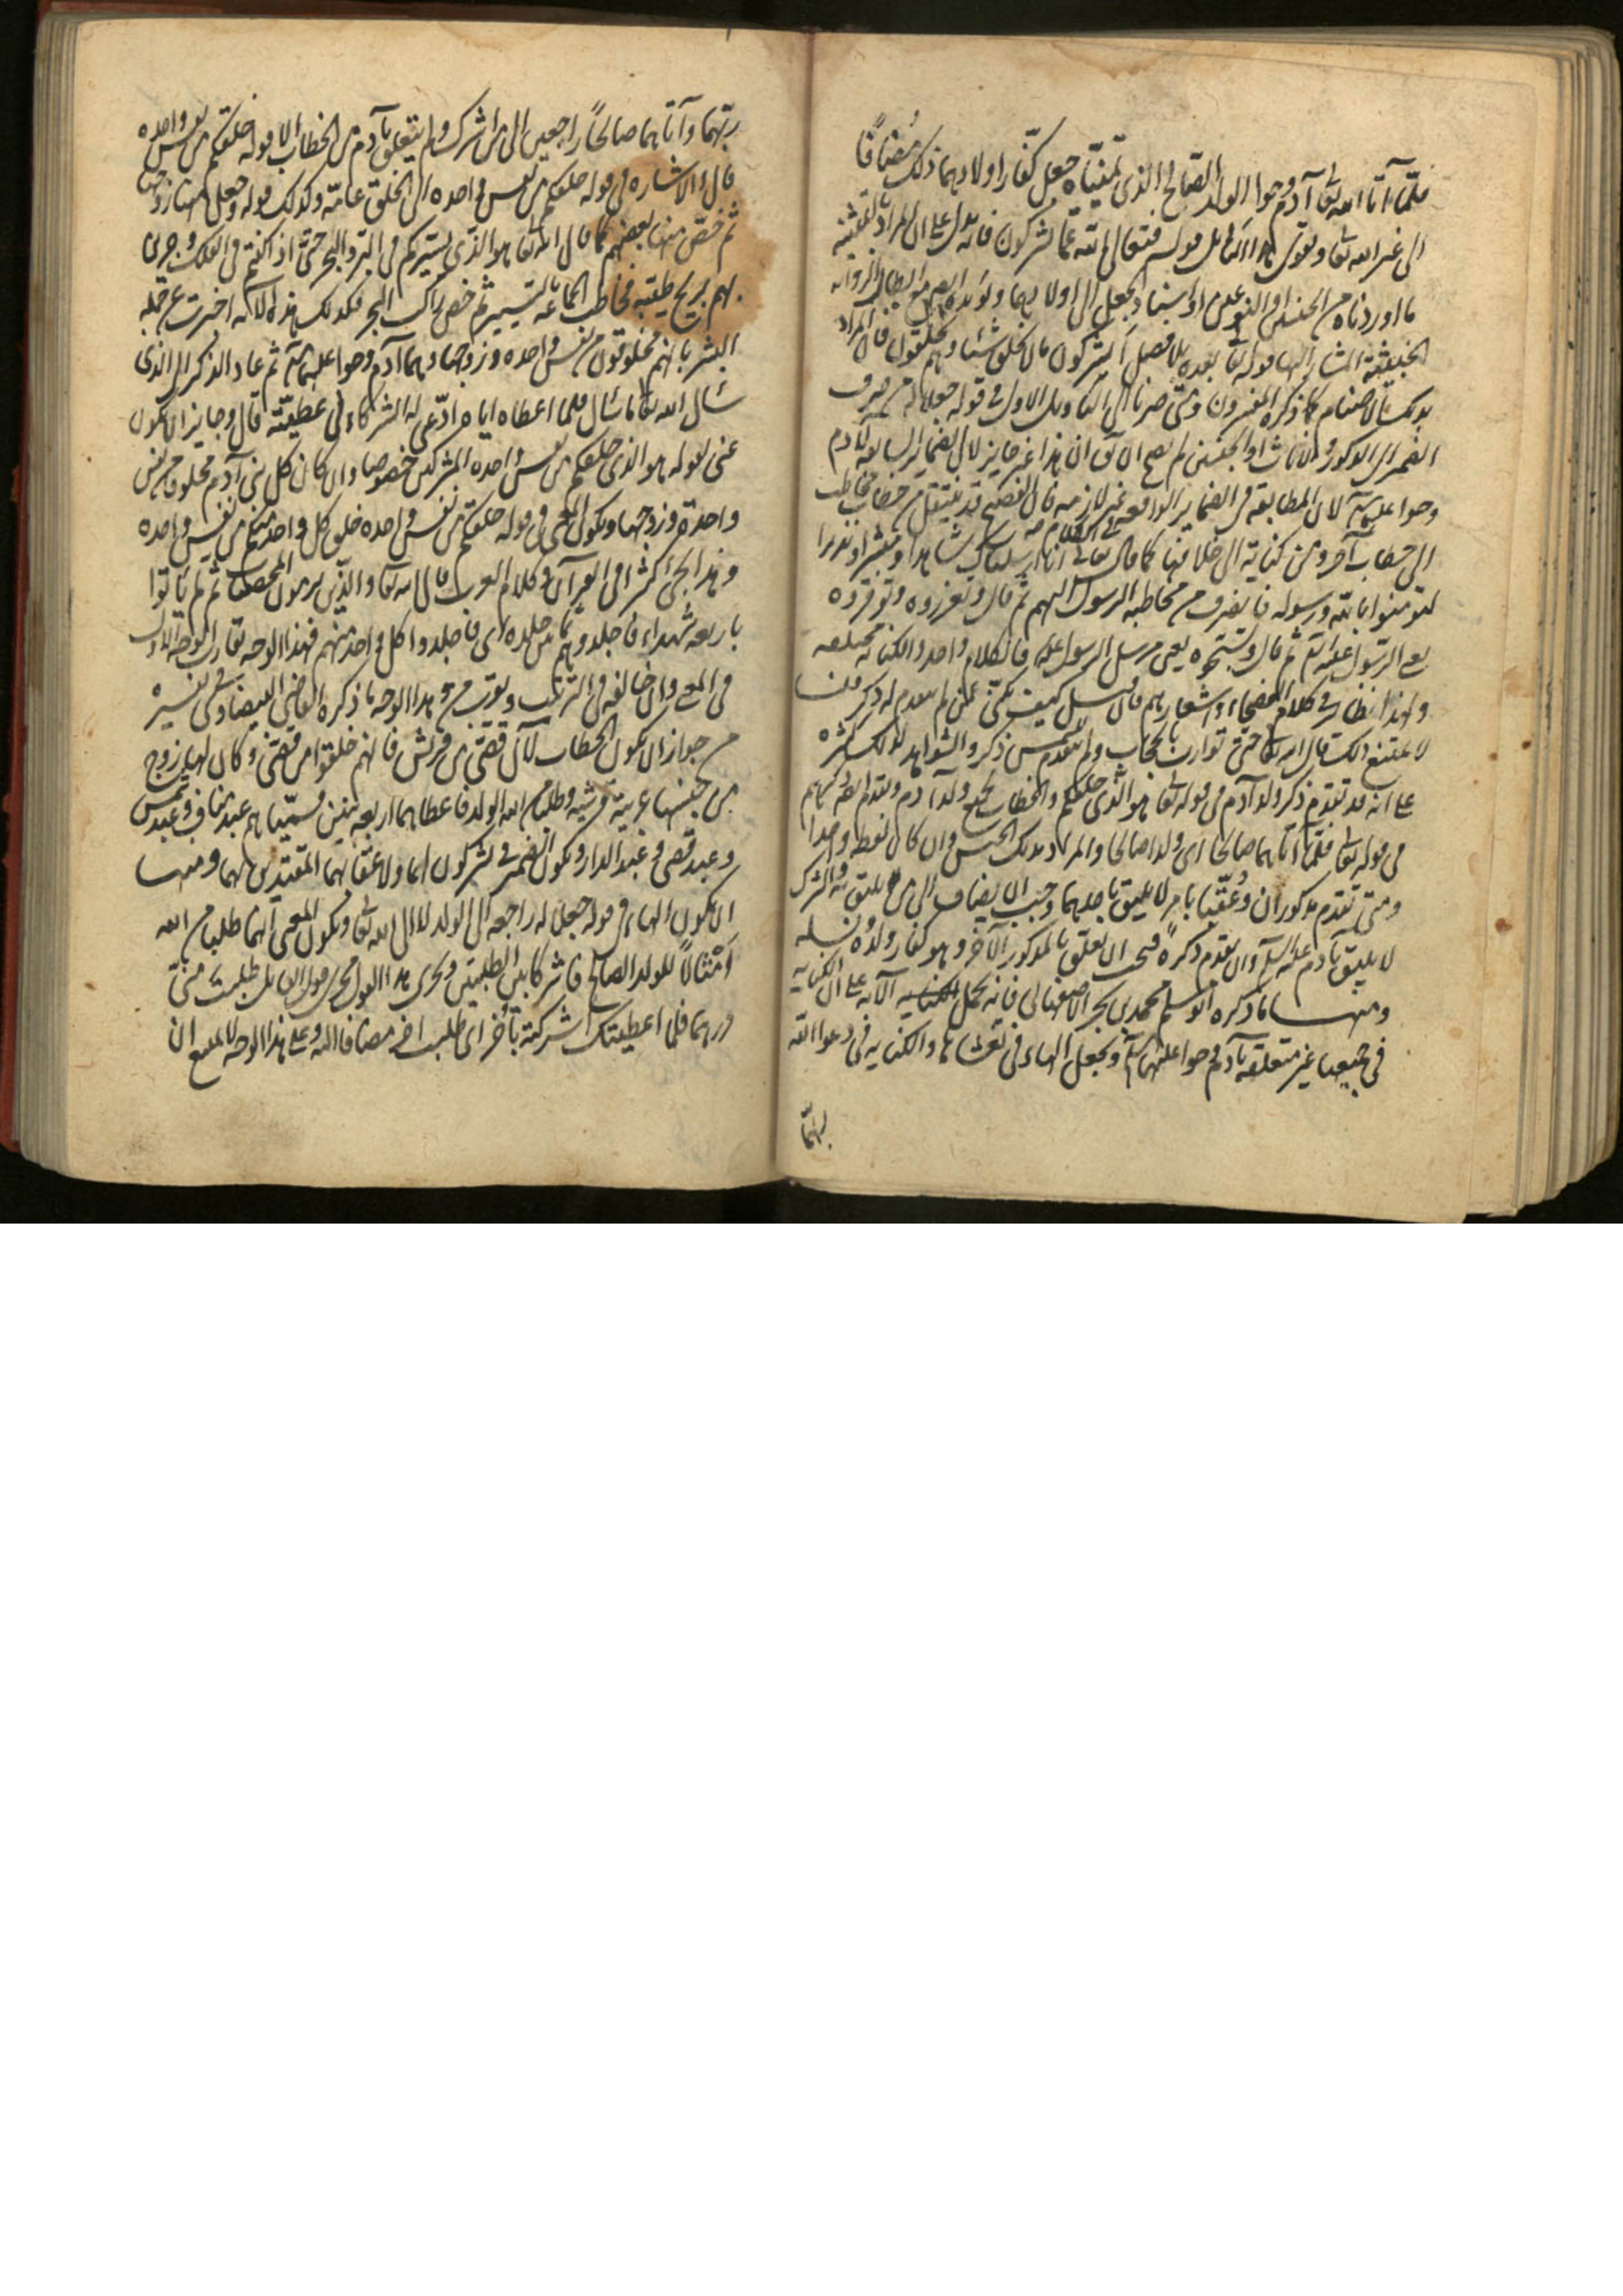 فلمّا آتا الله تعا آدم وحوا الولد الصّالح الذى تمنّياه جعل كفّار اولادهما ذلك مُضافًا
الى غير الله تعا ويقوى هذا التاويل قوله فتعالى الله عمّا يشركون فانه يدل على ان المراد بالتثنية
ما اوردناه من الجنسين او النوعين او اسناد الجعل الى اولادهما ويؤيده
الخبيثة المشار اليها قوله تعا بعده بلا فصل ايشركون ما لا يخلق شيئا وهم يخلقون فان المراد
بذلك الاصنام كما ذكره المفسرون ومتى صرنا الى التاويل الاول فى قوله جعلا له من صرف
الضمير الى الذكور والاناث او الجنسين لم يصح الا ان هذا غير جايز لان الضماير السابقه لآدم
وحوا عليهما السلم لان المطابقه فى الضماير الواقعه فى الكلام غير لازمه فان الفصيح قد ينتقل من خطاب مخاطب
الى خطاب آخر ومن كناية الى خلافها كما قال تعالى انا ارسلناك شاهدا ومبشرا ونذيرا
لتؤمنوا بالله ورسوله فانصرف من مخاطبه الرسول اليهم ثم قال وتعزروه وتوقروه
يعى الرّسول عليه السلم ثم قال وتسبّحوه يعنى مرسل الرسول فالكلام واحد والكنايه مختلفه
ولهذا نظائر فى كلام الفصحاء واشعارهم فان سئل كيف يكنى عمّن لم يتقدم له ذكر قلنا
لا يمتنع ذلك قال الله تعا حتى توارت بالحجاب ولم يتقدم للشمس ذكر والشواهد لذلك كثيره
على انه قد تقدم ذكر ولد آدم فى قوله تعا هو الذى خلقكم والخطاب لجميع ولد آدم وتقدم ايضا ذكرهم
فى قوله تعا فلمّا آتاهما صالحا اى ولدا صالحا والمراد بذلك الجنس وان كان لفظه واحدا
ومتى تقدم مذكوران وعُقّبا بامر لا يليق باحدهما وجب ان يضاف الى من يليق به والشرك
لا يليق بآدم عليه السلم وان تقدم ذكره فيجب ان يعلق بالمذكور الآخر وهو كفار ولده ونسله
ومنها ما ذكره ابو مسلم محمد بن بحر الاصفهانى فانه يحمل الآيه على ان الكنايه
فى جميعها غير متعلقه بآدم وحوا عليهما السلم ويجعل الهاء فى تغشاها والكنايه فى دعوا الله
ربهما
ربّهما وآتاهما صالحاً راجعين الى من اشرك ولم يتعلق بآدم من الخطاب الا قوله خلقكم من نفس واحده
قال والاشاره فى قوله خلقكم من نفس واحده الى الخلق عامّه وكذلك قوله وجعل منها زوجها
ثم خصّ منها بعضهم كما قال الله تعا هو الذى يسيركم فى البرّ والبحر حتى اذا كنتم فى الفلك وجرين
بهم بريح طيّبه فخاطب الجماعه بالتسيير ثم خصّ راكب البحر فكذلك هذه الآيه اخبرت عن جمله
البشر بانهم مخلوقون من نفس واحده وزوجها وهما آدم وحوا عليهما السلم ثم عاد الذكر الى الذى
سئال الله تعا ما سئال فلما اعطاه اياه ادّعى له الشركاء فى عطيّته قال وجايز ان يكون
عنى بقوله هو الذى خلقكم من نفس واحده المشركين خصوصا وان كان كل بنى آدم مخلوقا من نفس
واحدة وزوجها ويكون المعنى فى قوله خلقكم من نفس واحده خلق كل واحد منكم من نفس واحده
وهذا يجئ كثيرا فى القرآن وكلام العرب قال الله تعا والذين يرمون المحصنات ثم لم ياتوا
باربعه شهداء فاجلدوهم ثمانين جلده اى فاجلدوا كل واحد منهم فهذا الوجه يقارب الوجه الاول
فى المعنى وان خالفه فى الترتيب ويقرب من هذا الوجه ما ذكره القاضى البيضاوى فى تفسيره
من جواز ان يكون الخطاب لآل قصّى من قريش فانهم خلقوا من قصّى وكان لهم زوج
من جنسها عربية قرشيه وطلبا من الله الولد فاعطاهما اربعه بنين فسمّياهم عبد مناف وعبد شمس
وعبد قصى وعبد الدار ويكون الضمير فى يشركون لهما ولاعقابهما المقتدين بهما ومنها
ان يكون الهاء فى قوله جعلا له راجعه الى الولد لا الى الله تعا ويكون المعنى انهما طلبا من الله
اَمْثالاً للولد الصالح فاشركا بين الطلبتين ويجرى هذا القول مجرى قول القائل طلبت منّى
درهما فلما اعطيتك اشركته بآخر اى طلبت آخر مضافا اليه وعلى هذا الوجه لا يمتنع ان